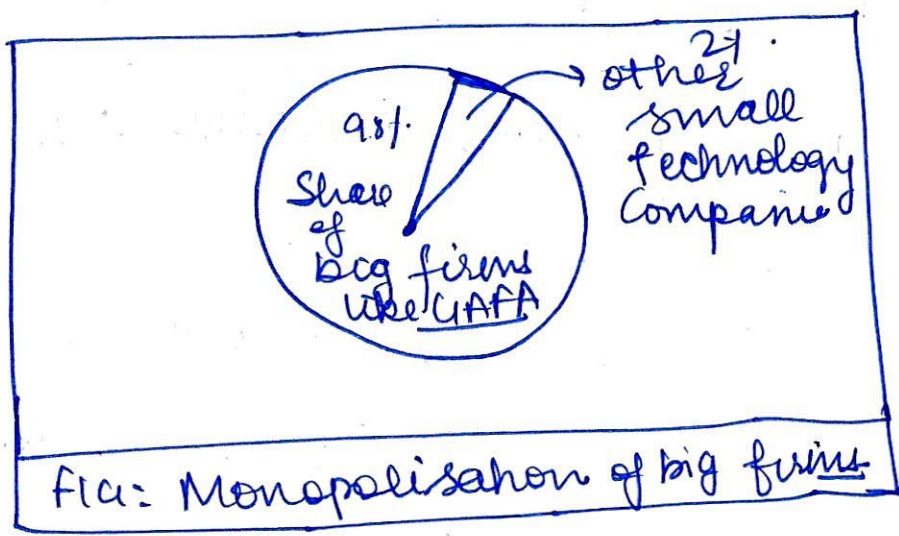 98%.
Share
of
big firms
like GAFA
2%.
other
small
technology
Companies
FIG: Monopolisation of big firms